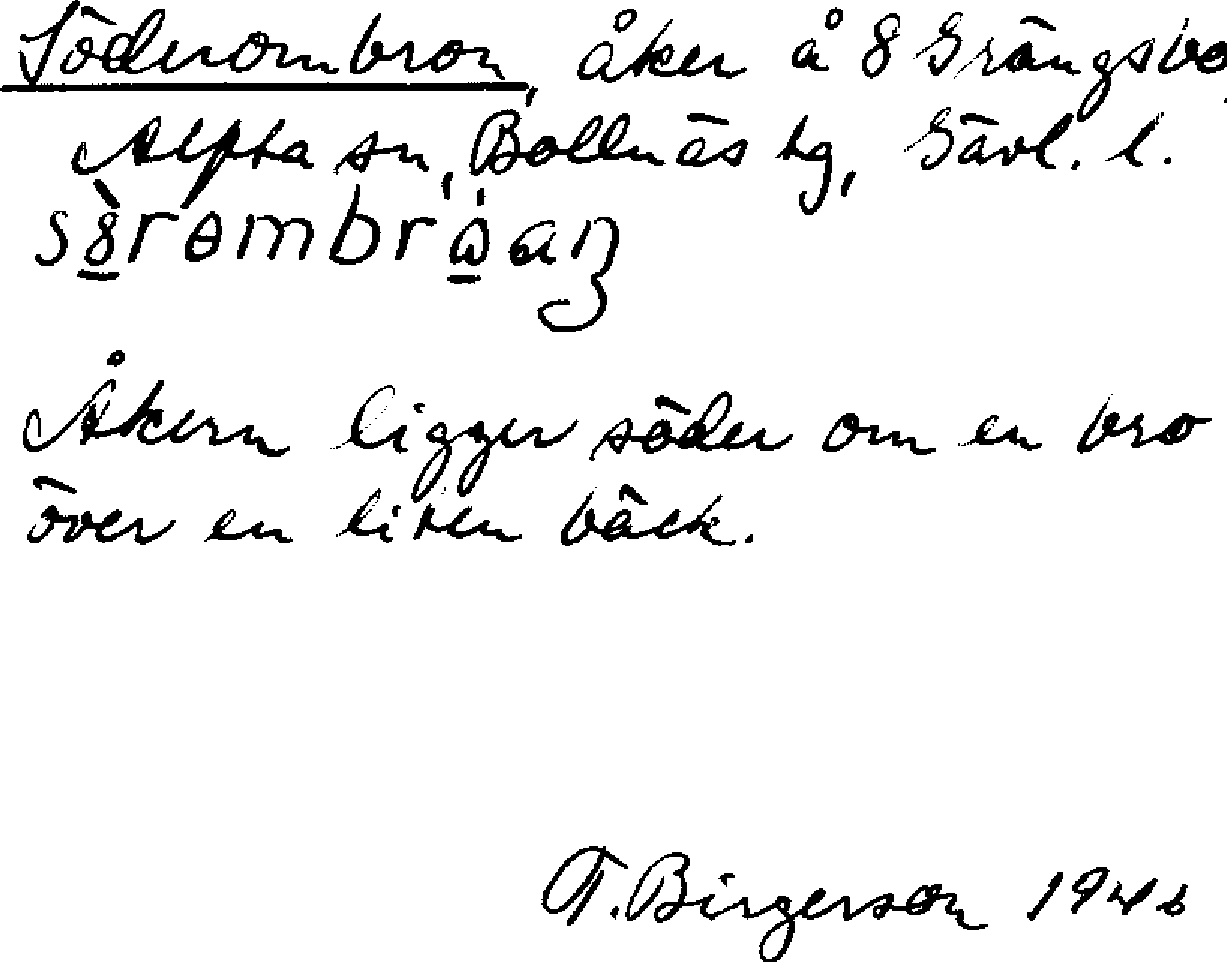 Söderombron, åker å 8 Grängsbo,
Alfta sn, Bollnäs tg, Gävl. l.
Åkern ligger söder om en bro
över en liten bäck.
T. Birgerson 1946